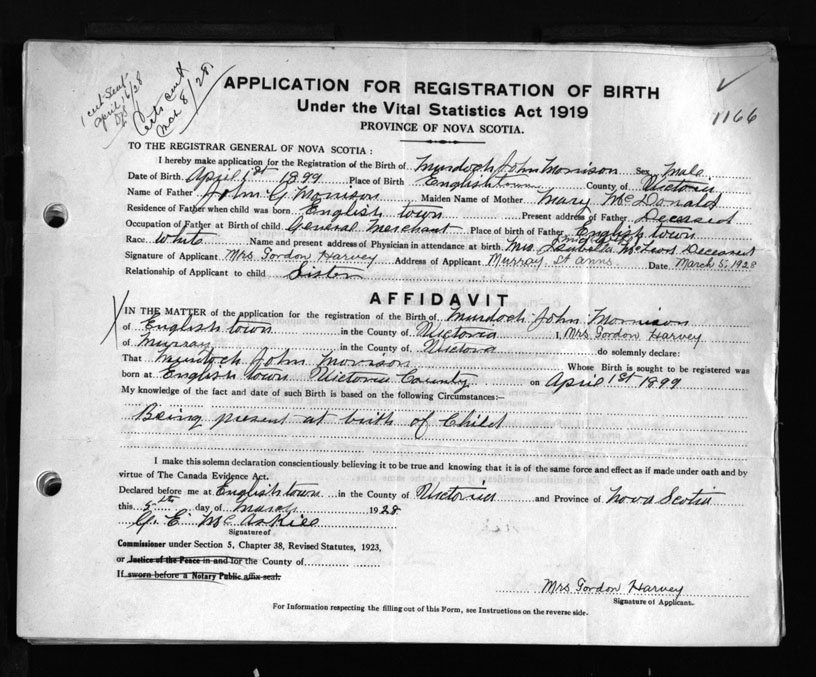 1 cert sent
april 16/28
Certs sent
mar 8/28.
✓
1166
APPLICATION FOR REGISTRATION OF BIRTH
Under the Vital Statistics Act 1919
PROVINCE OF NOVA SCOTIA.
TO THE REGISTRAR GENERAL OF NOVA SCOTIA :
I hereby make application for the Registration of the Birth of Murdoch John Morrison Sex Male
Date of Birth April 1st 1899 Place of Birth Englishtown County of Victoria
Name of Father John G Morrison Maiden Name of Mother Mary McDonald
Residence of Father when child was born English town Present address of Father Deceased
Occupation of Father at Birth of child General Merchant Place of birth of Father English town
Race White Name and present address of Physician in attendance at birth Mrs Isabella McLeod Deceased
Signature of Applicant Mrs Gordon Harvey Address of Applicant Murray St anns Date March 5, 1928
Relationship of Applicant to child Sister
AFFIDAVIT
IN THE MATTER of the application for the registration of the Birth of Murdoch John Morrison
of English town in the County of Victoria I, Mrs Gordon Harvey
of Murray in the County of Victoria do solemnly declare:
That Murdoch John Morrison Whose Birth is sought to be registered was
born at English town Victoria County on April 1st 1899
My knowledge of the fact and date of such Birth is based on the following Circumstances:—
Being present at birth of Child
I make this solemn declaration conscientiously believing it to be true and knowing that it is of the same force and effect as if made under oath and by
virtue of The Canada Evidence Act.
Declared before me at Englishtown in the County of Victoria and Province of Nova Scotia
this 5th day of March 1928
G. E. McAskill
Signature of
Commissioner under Section 5, Chapter 38, Revised Statutes, 1923,
or Justice of the Peace in and for the County of
If sworn before a Notary Public affix seal.
Mrs Gordon Harvey
Signature of Applicant.
For Information respecting the filling out of this Form, see Instructions on the reverse side.